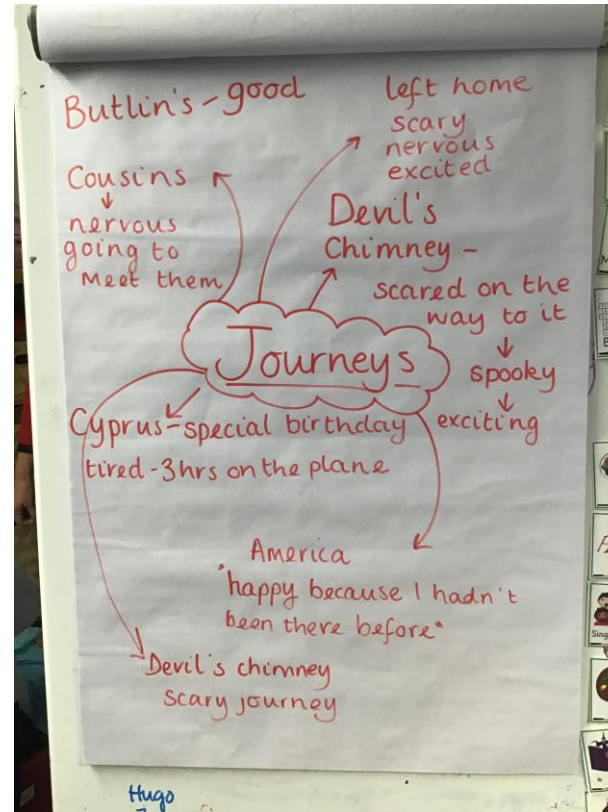 Butlin's - good
left home
scary
nervous
excited
Cousins
↓
nervous
going to
meet them
Devil's
Chimney -
scared on the
way to it
↓
spooky
↓
exciting
Journeys
Cyprus - special birthday
tired - 3hrs on the plane
America
"happy because I hadn't
been there before"
Devil's chimney
scary journey
Hugo
Sing